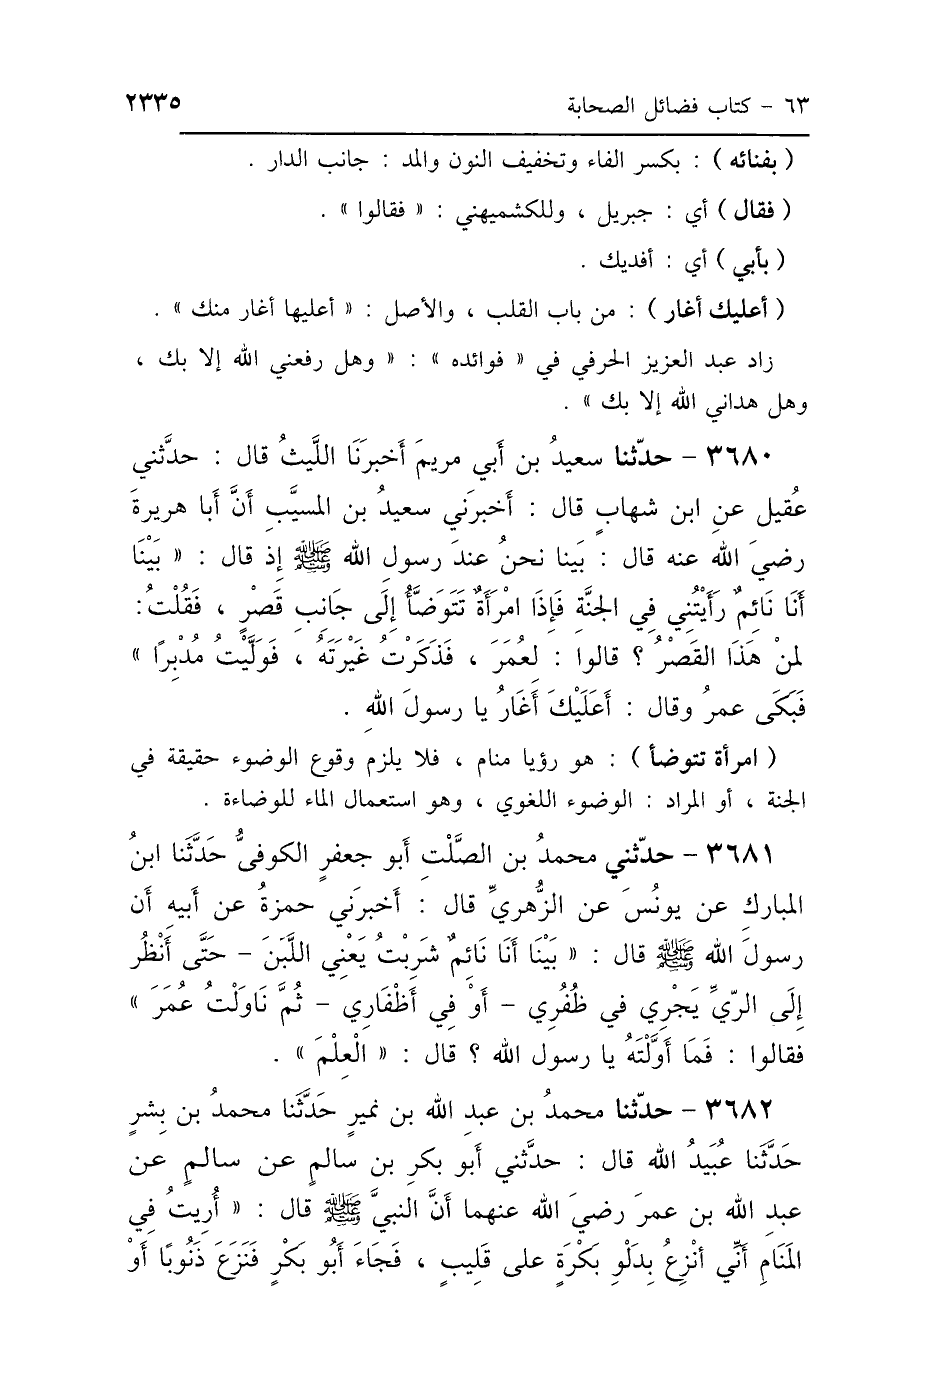 ٦٣ - كتاب فضائل الصحابة ٢٣٣٥
( بفنائه ) : بكسر الفاء وتخفيف النون والمد : جانب الدار .
( فقال ) أي : جبريل ، وللكشميهني : « فقالوا » .
( بأبي ) أي : أفديك .
( أعليك أغار ) : من باب القلب ، والأصل : « أعليها أغار منك » .
زاد عبد العزيز الحرفي في « فوائده » : « وهل رفعني الله إلا بك ،
وهل هداني الله إلا بك » .
٣٦٨٠ - حدّثنا سعيدُ بن أبي مريمَ أخبرَنَا اللَّيثُ قال : حدَّثني
عُقيل عنِ ابن شهابٍ قال : أخبرَني سعيدُ بن المسيَّبِ أنَّ أبا هريرةَ
رضيَ الله عنه قال : بَينا نحنُ عندَ رسولِ الله ﷺ إذ قال : « بَيْنَا
أَنَا نَائِمٌ رَأَيْتُنِي فِي الجنَّةِ فَإِذَا امْرَأَةٌ تَتَوَضَّأُ إِلَى جَانِبِ قَصْرٍ ، فَقُلْتُ:
لمنْ هَذَا القَصْرُ ؟ قالوا : لِعُمَرَ ، فَذَكَرْتُ غَيْرَتَهُ ، فَوَلَّيْتُ مُدْبِرًا »
فَبَكَى عمرُ وقال : أَعَلَيْكَ أَغَارُ يا رسولَ اللهِ .
( امرأة تتوضأ ) : هو رؤيا منام ، فلا يلزم وقوع الوضوء حقيقة في
الجنة ، أو المراد : الوضوء اللغوي ، وهو استعمال الماء للوضاءة .
٣٦٨١ - حدّثني محمدُ بن الصَّلْتِ أبو جعفرٍ الكوفيُّ حَدَّثَنا ابنُ
المباركِ عن يونُسَ عن الزُّهريِّ قال : أخبرَني حمزةُ عن أبيهِ أن
رسولَ الله ﷺ قال : « بَيْنَا أَنا نَائِمٌ شَرِبْتُ يَعْنِي اللَّبَنَ - حَتَّى أَنْظُرُ
إِلَى الرّيِّ يَجْرِي في ظُفُرِي - أَوْ فِي أَظْفَارِي - ثُمَّ نَاوَلْتُ عُمَرَ »
فقالوا : فَمَا أَوَّلْتَهُ يا رسول الله ؟ قال : « الْعِلْمَ » .
٣٦٨٢ - حدّثنا محمدُ بن عبدِ الله بن نميرٍ حَدَّثَنا محمدُ بن بِشرٍ
حَدَّثَنا عُبَيدُ الله قال : حدَّثني أبو بكرِ بن سالمٍ عن سالمٍ عن
عبدِ الله بن عمرَ رضيَ الله عنهما أنَّ النبيَّ ﷺ قال : « أُرِيتُ فِي
المَنَامِ أَنِّي أنْزِعُ بِدَلْوِ بَكْرَةٍ على قَلِيبٍ ، فَجَاءَ أَبُو بَكْرٍ فَنَزَعَ ذَنُوبًا أَوْ